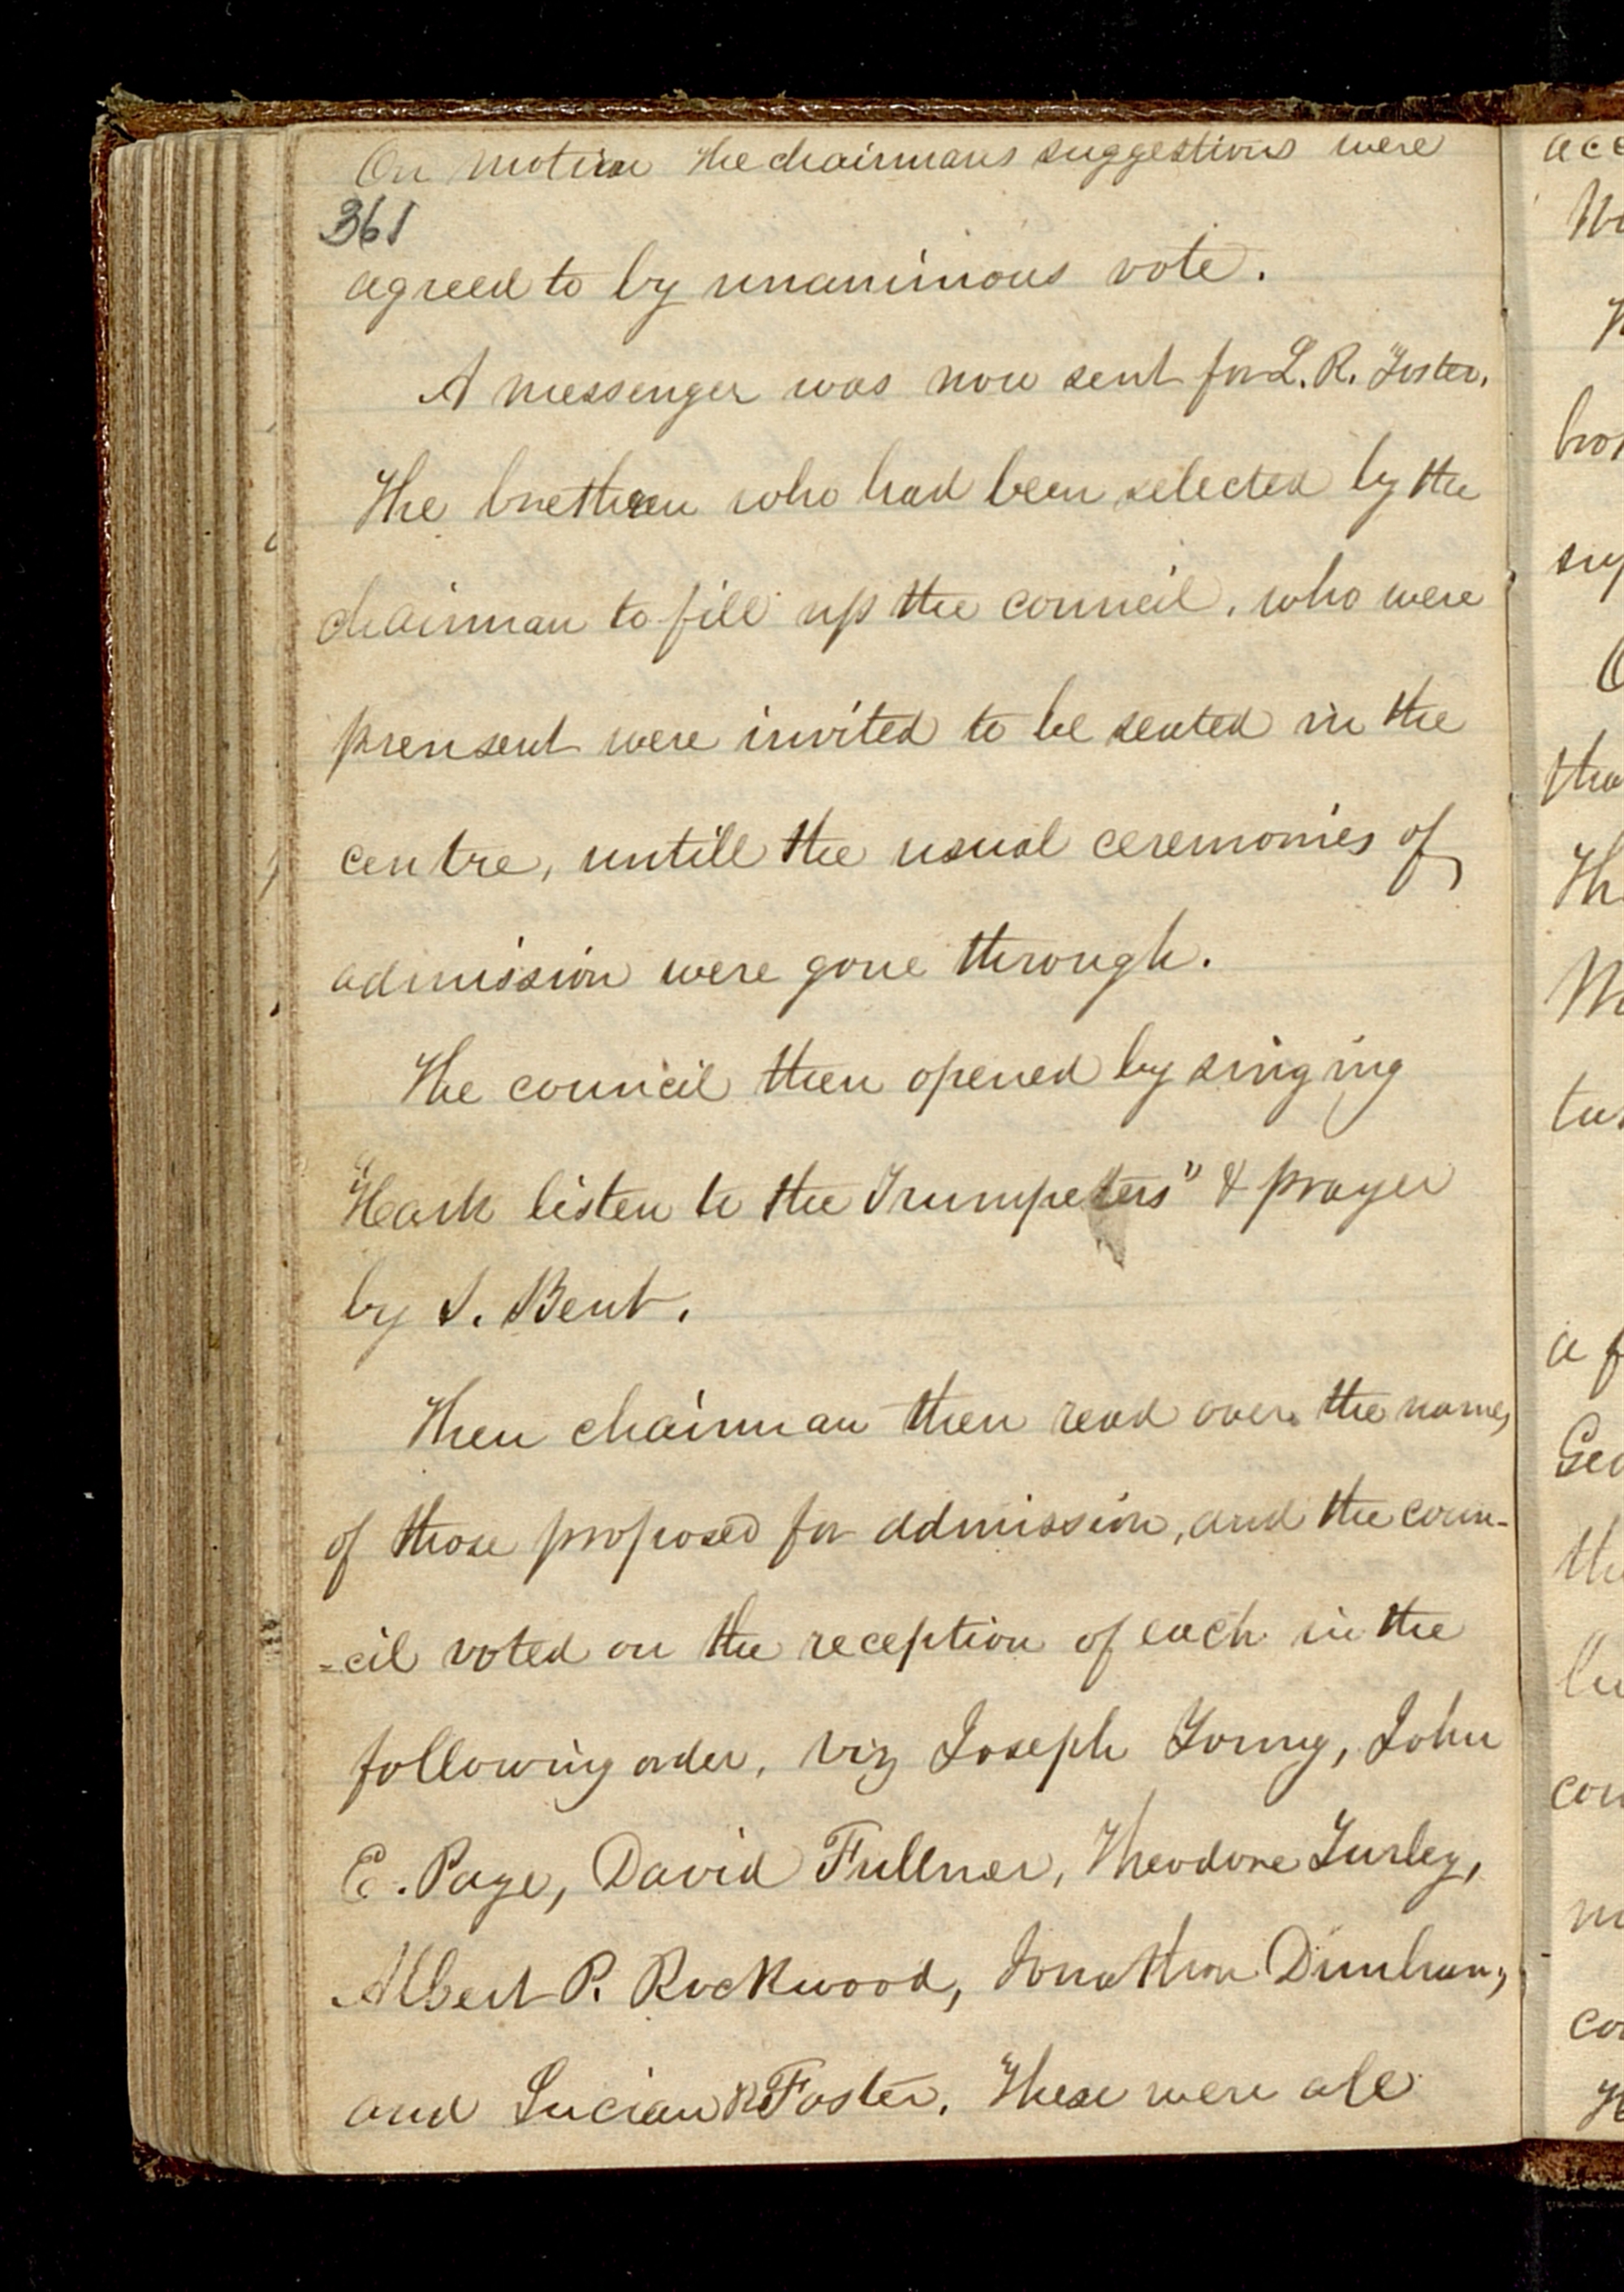 On motion the chairmans suggestions were
361
agreed to by unanimous vote.
A messenger was now sent for L. R. Foster.
The brethren who had been selected by the
chairman to fill up the council, who were
prensent were invited to be seated in the
centre, untill the usual ceremonies of
admission were gone through.
The council then opened by singing
"Hark listen to the Trumpeters" & prayer
by S. Bent.
Then chairman then read over the names
of those proposed for admission, and the coun-
=cil voted on the reception of each in the
following order, viz Joseph Young, John
E. Page, David Fullmer, Theodore Turley,
Albert P. Rockwood, Jonathan Dunham,
and Lucian R Foster. These were all